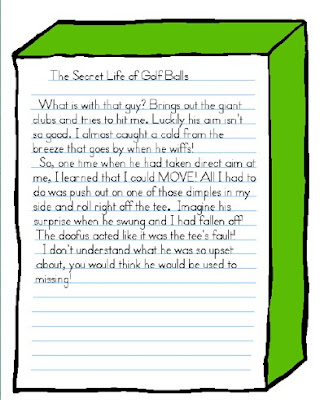 The Secret Life of Golf Balls
What is with that guy? Brings out the giant
clubs and tries to hit me. Luckily his aim isn't
so good. I almost caught a cold from the
breeze that goes by when he wiffs!
So, one time when he had taken direct aim at
me, I learned that I could MOVE! All I had to
do was push out on one of those dimples in my
side and roll right off the tee. Imagine his
surprise when he swung and I had fallen off!
The doofus acted like it was the tee's fault!
I don't understand what he was so upset
about, you would think he would be used to
missing!